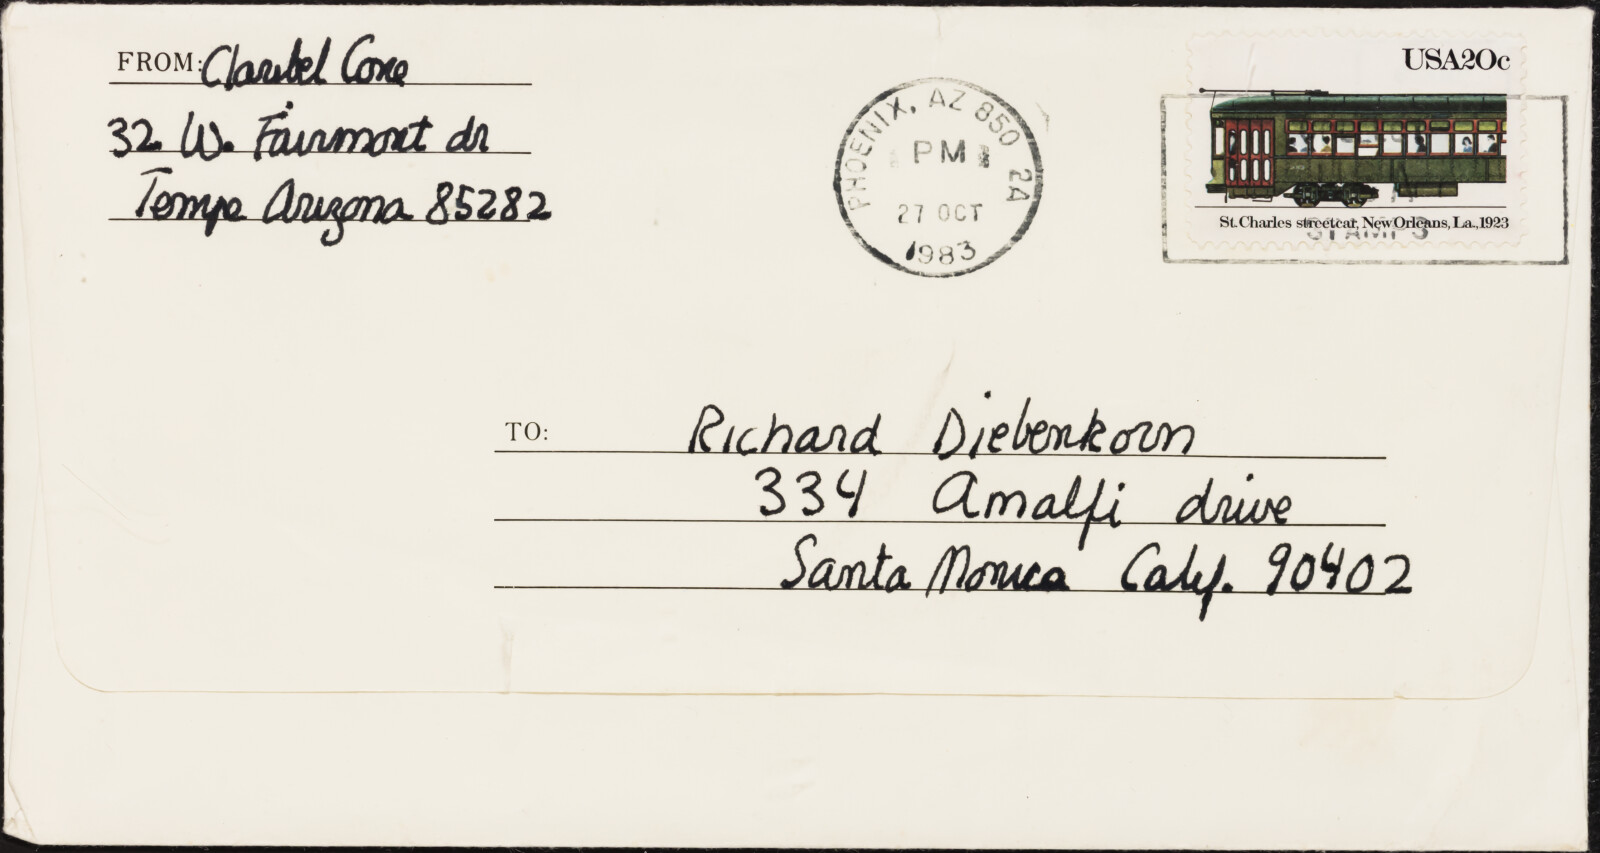 FROM: Claribel Cone
32 W. Fairmont dr
Tempe Arizona 85282
PHOENIX, AZ 850 2A
PM
27 OCT
1983
USA20c
St. Charles streetcar, New Orleans, La., 1923
STAMPS
TO: Richard Diebenkorn
334 Amalfi drive
Santa Monica Calif. 90402